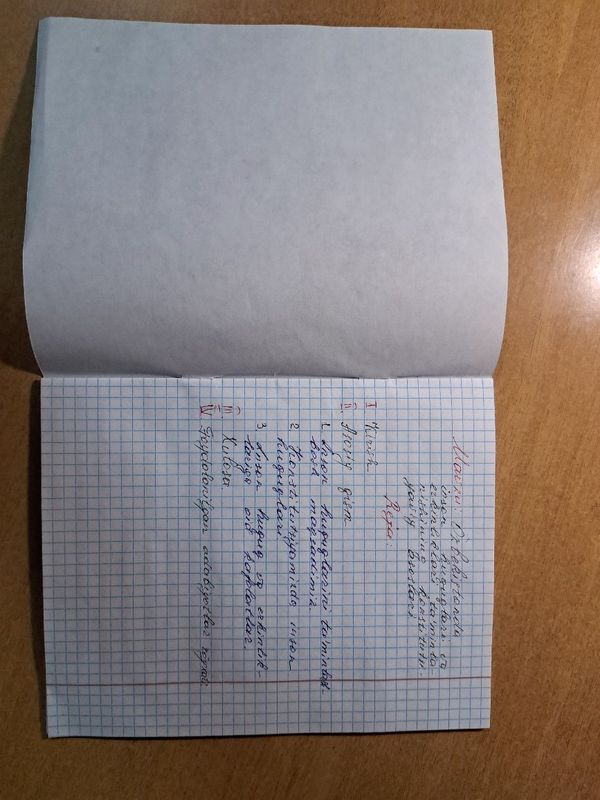 Mavzu: O'zbekistonda
inson huquqlari va
erkinliklari ta'minla-
nishining konstitutsi-
yaviy asoslari
Reja:
I Kirish
II. Asosiy qism
1. Inson huquqlarini ta'minlash
bosh maqsadimiz
2. Konstitutsiyamizda inson
huquqlari
3. Inson huquq va erkinlik-
lariga oid hujjatlar.
III. Xulosa
IV Foydalanilgan adabiyotlar ro'yxati.